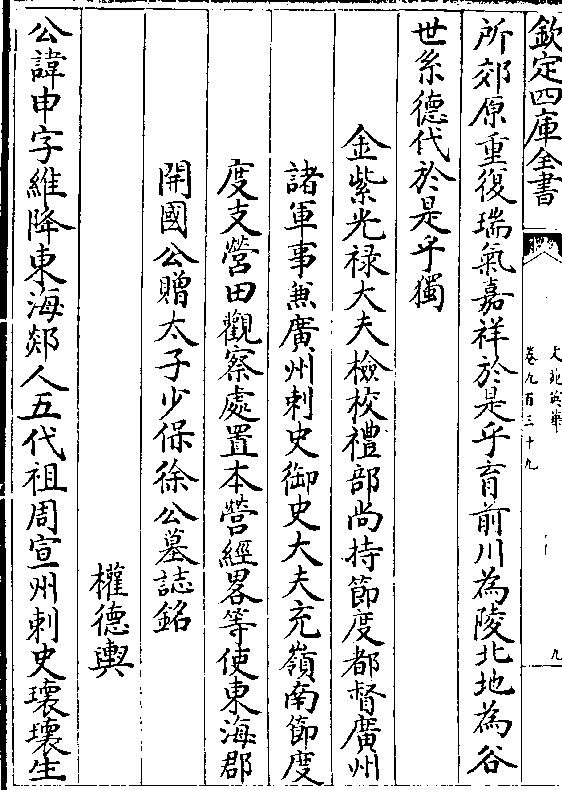 欽定四庫全書
文苑英華
卷九百三十九
九
所郊原重復瑞氣嘉祥於是乎育前川為陵北地為谷
世系德代於是乎獨
金紫光禄大夫檢校禮部尚持節度都督廣州
諸軍事兼廣州刺史御史大夫充嶺南節度
度支營田觀察處置本營經畧等使東海郡
開國公贈太子少保徐公墓誌銘
權德輿
公諱申字維降東海郯人五代祖周宣州刺史瓌壞生